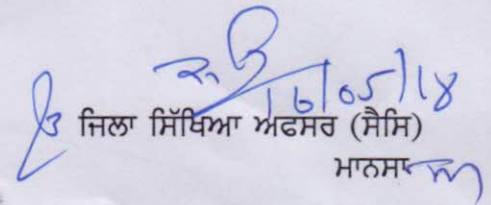 16/05/18
ਜਿਲਾ ਸਿੱਖਿਆ ਅਫਸਰ (ਸੈਸਿ)
ਮਾਨਸਾ